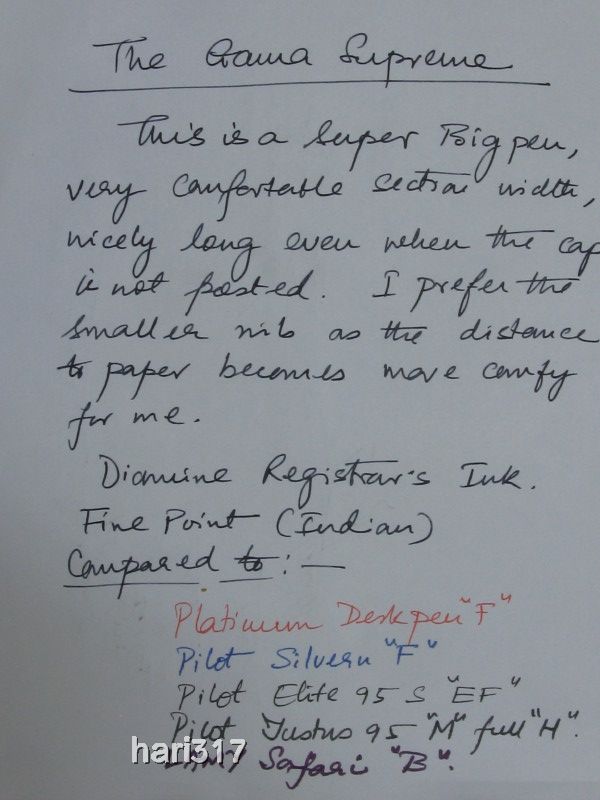 The Gama Supreme
This is a super Big pen,
very comfortable section width,
nicely long even when the cap
is not posted. I prefer the
smaller nib as the distance
to paper becomes more comfy
for me.
Diamine Registrar's Ink.
Fine Point (Indian)
Compared to :—
Platinum Deskpen "F"
Pilot Silvern "F"
Pilot Elite 95 S "EF"
Pilot Justus 95 "M" full "H".
Lamy Safari "B".
hari317